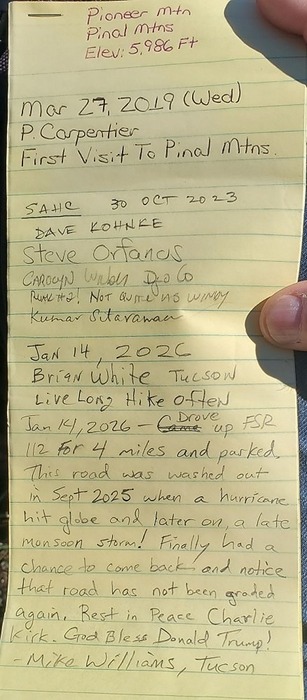 Pioneer Mtn
Pinal Mtns
Elev: 5,986 Ft
Mar 27, 2019 (Wed)
P. Carpentier
First Visit To Pinal Mtns.
SAHC 30 OCT 2023
DAVE KOHNKE
Steve Orfanos
CAROLYN
NOT QUITE AS WINDY
Kumar Sitaraman
Jan 14, 2026
Brian White Tucson
Live Long Hike Often
Jan 14, 2026 - Came Drove up FSR
112 for 4 miles and parked.
This road was washed out
in Sept 2025 when a hurricane
hit globe and later on, a late
monsoon storm! Finally had a
chance to come back and notice
that road has not been graded
again. Rest in Peace Charlie
Kirk. God Bless Donald Trump!
- Mike Williams, Tucson